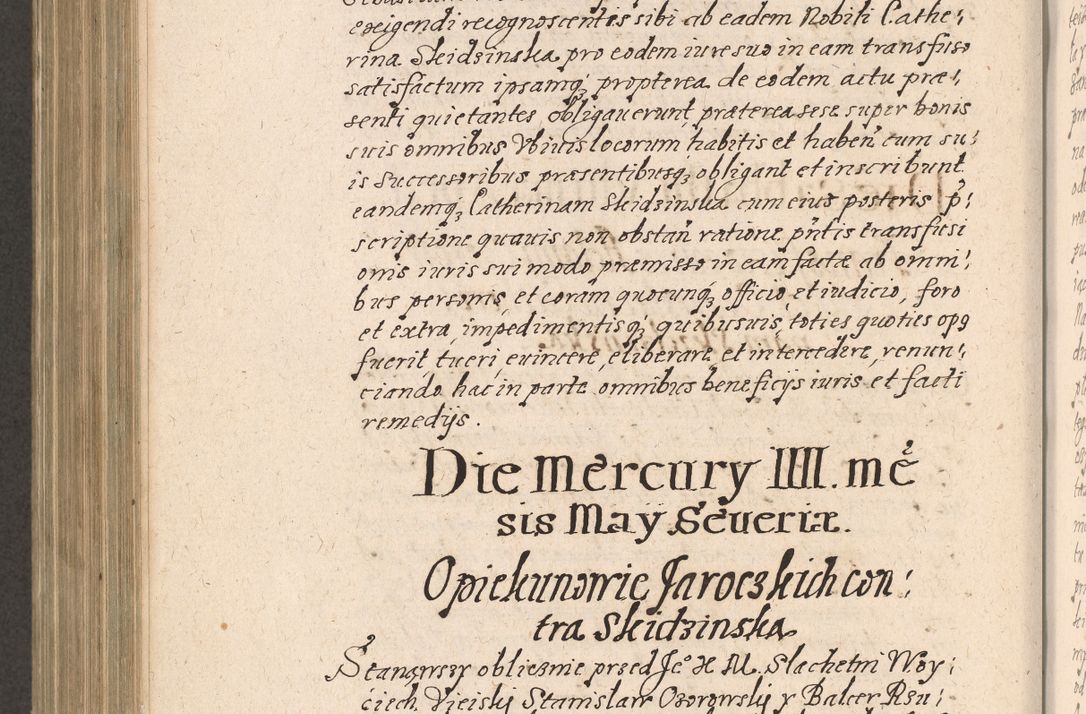 exigendi recognoscentes sibi ab eadem Nobili Cathe:
rina Skidzinska pro eodem iure suo in eam transfuso
satisfactum ipsamq; propterea de eodem actu præ:
senti quietantes, obligauerunt præterea sese super bonis
suis omnibus Vbiuis locorum habitis et haben̄ cum su:
is Successoribus præsentibusq; obligant et inscribunt
eandemq; Catherinam Skidzinska cum eius posteris p̄:
scriptione quauis non obstan̄ ratione pn̄tis transfusi
onis iuris sui modo præmisso in eam factæ ab omni:
bus personis, et coram quocunq; officio, et iudicio, foro
et extra, impedimentisq; quibusuis, toties quoties opq
fuerit tueri, euincere, eliberare, et intercedere, renun:
ciando hac in parte omnibus beneficijs iuris et facti
remedijs.
Die Mercury IIII. mē
sis May Seueriæ.
Opiekunowie Jaroczkich con:
tra Skidzinska
Stanąwszy oblicznie przed Je° X M. Slachetni Woy:
ciech Vieiski Stanislaw Ozorowski y Balcer Rsu: